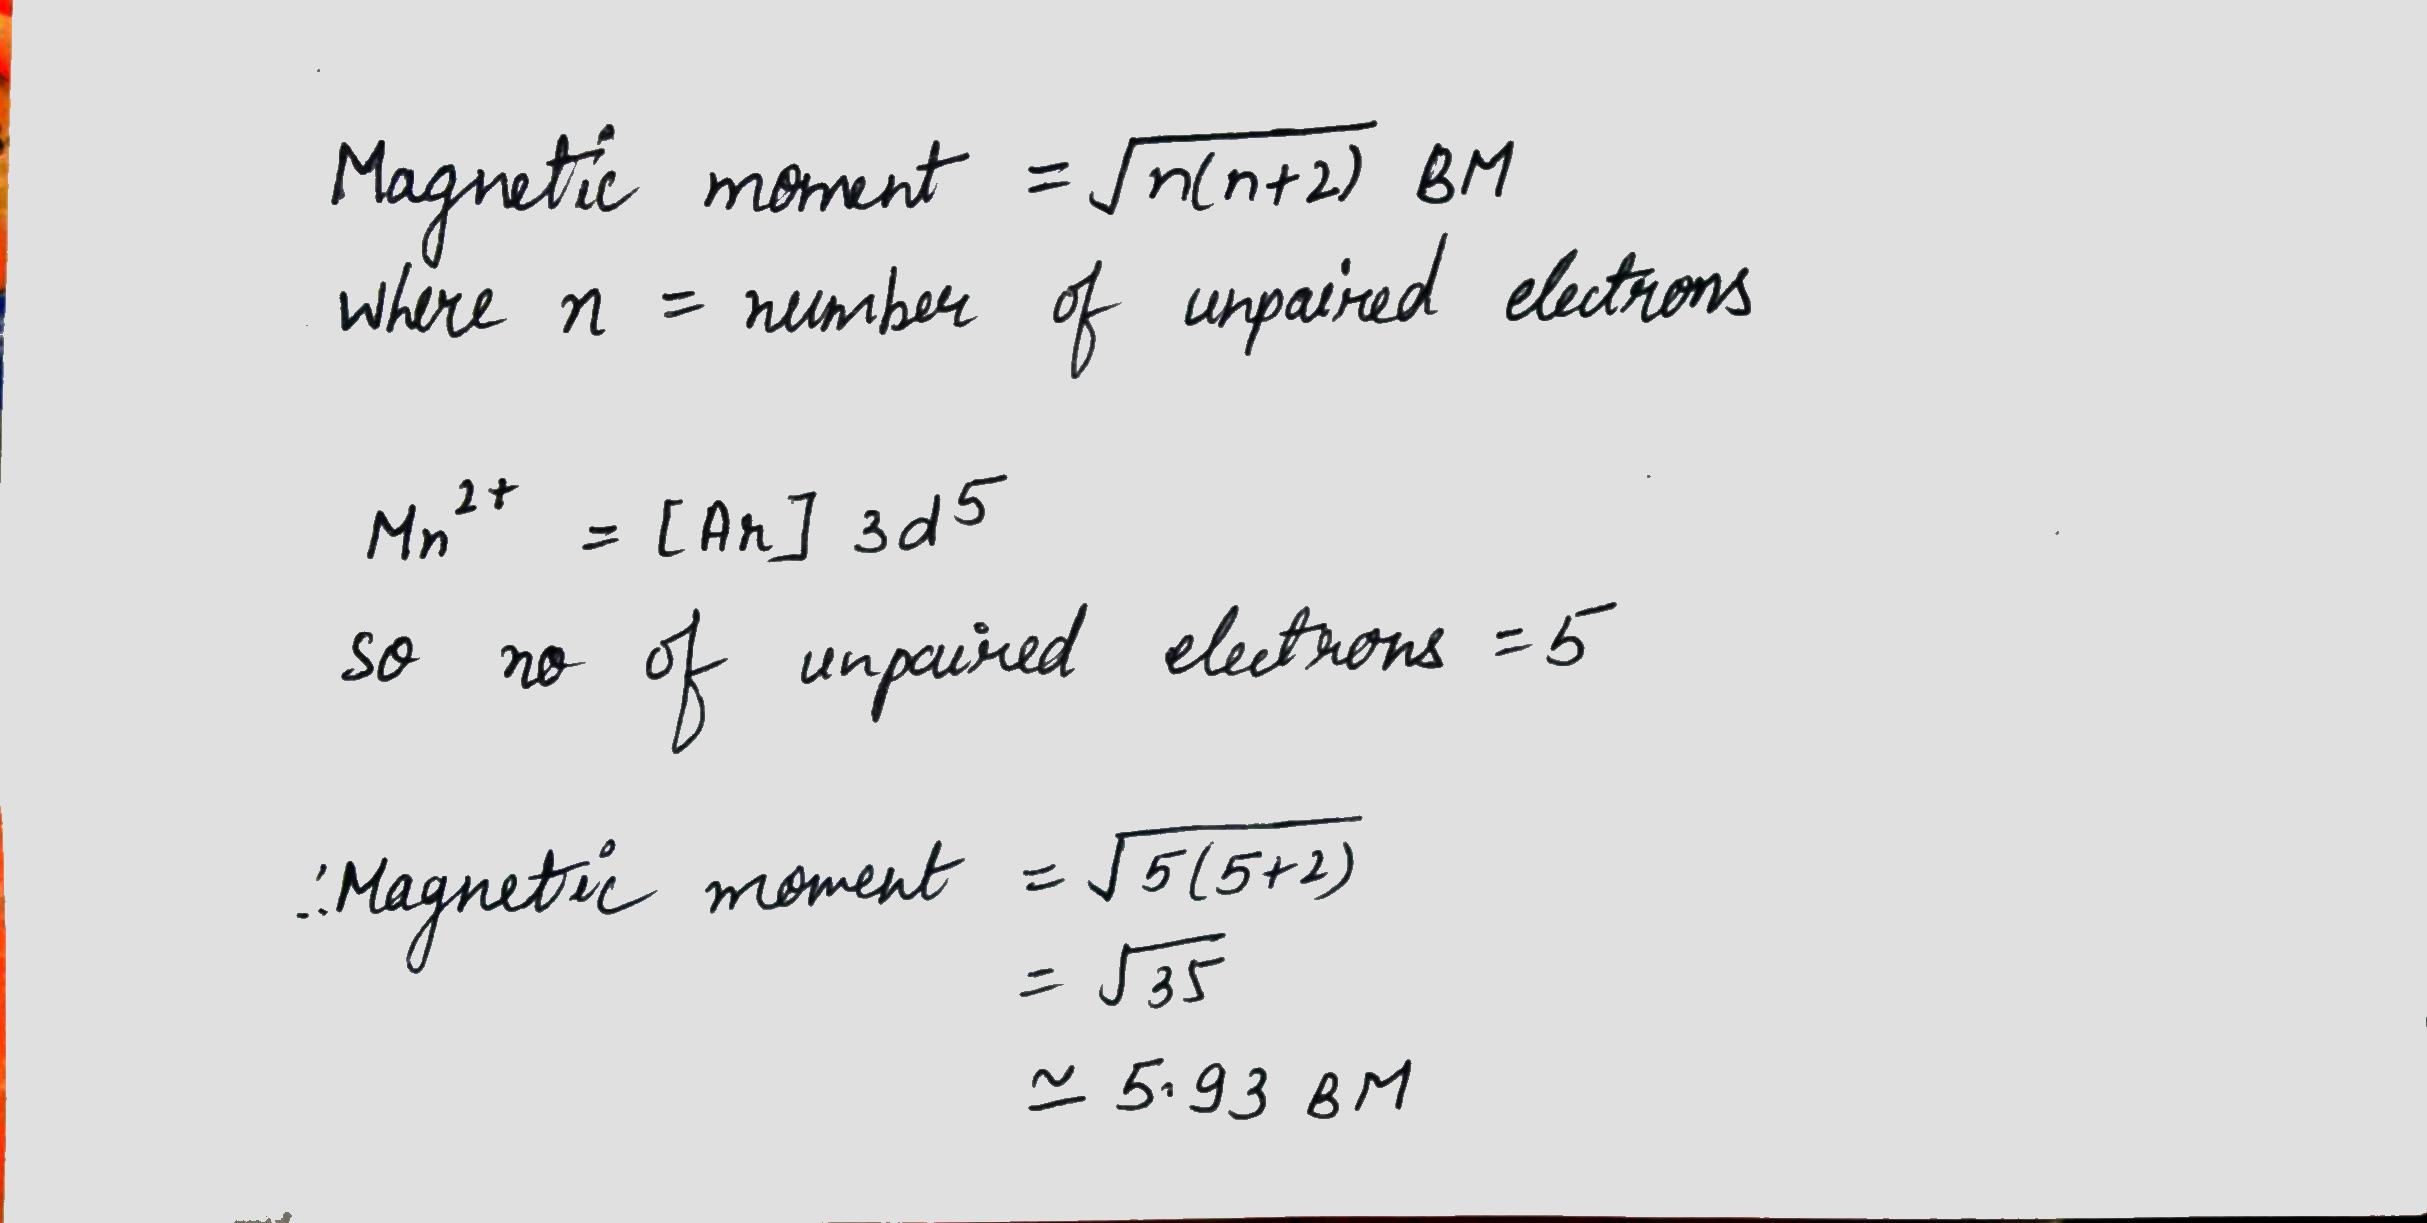 Magnetic moment = √n(n+2) BM
where n = number of unpaired electrons
Mn²⁺ = [Ar] 3d⁵
so no of unpaired electrons = 5
∴ Magnetic moment = √5(5+2)
= √35
≃ 5.93 BM